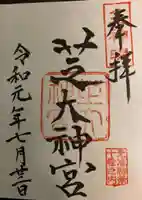 奉拝
芝大神宮
令和元年七月廿一日